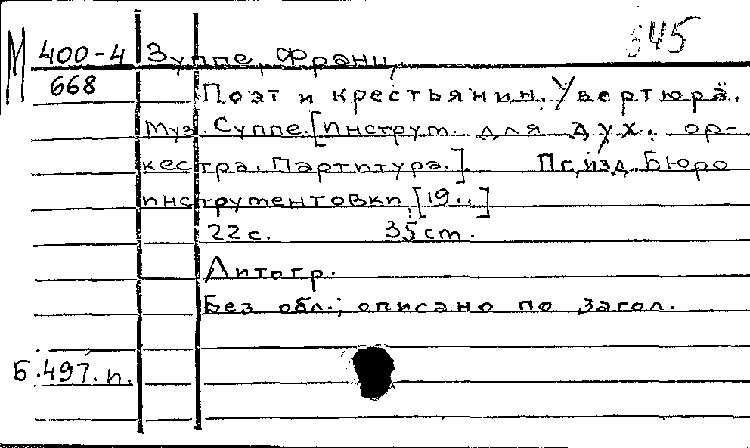 545
М 400-4 Зуппе, Франц
668 Поэт и крестьянин. Увертюра.
Муз. Суппе. [Инструм. для дух. ор-
кестра. Партитура.]. Пг, изд. Бюро
инструментовки, [19..]
22 с. 35 cm.
Литогр.
Без обл.; описано по загол.
Б.497.п.